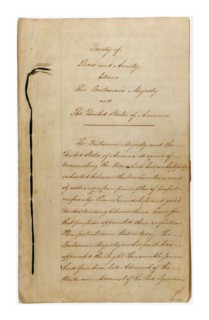 Treaty of
Peace and Amity
between
His Britannic Majesty
and
The United States of America
His Britannic Majesty and the
United States of America desirous of
terminating the War which has unhappily
subsisted between the two Countries, and
of restoring upon principles of perfect
reciprocity, Peace, Friendship, and good
Understanding between them, have for
that purpose appointed their respective
Plenipotentiaries, that is to say, His
Britannic Majesty on His part has
appointed the Right Honourable James
Lord Gambier, late Admiral of the